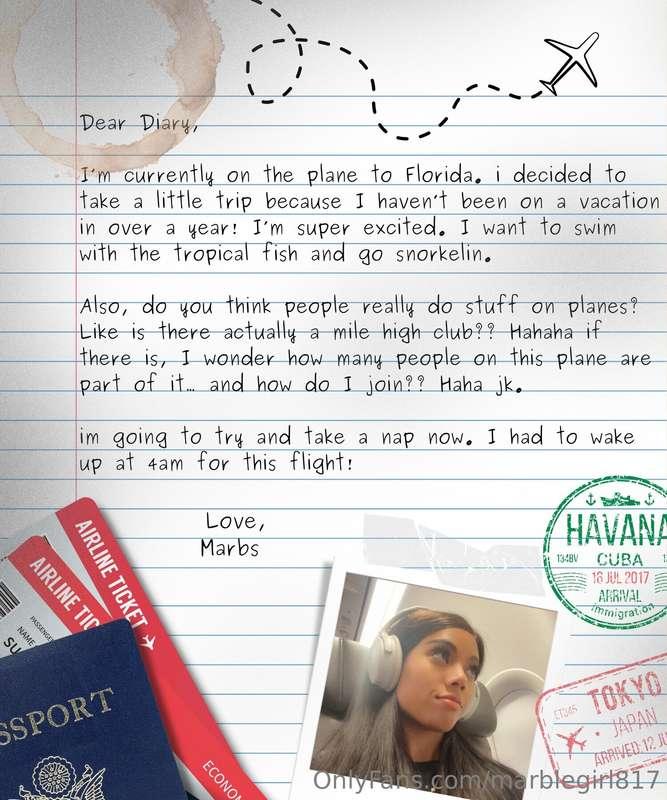 Dear Diary,
I'm currently on the plane to Florida. i decided to
take a little trip because I haven't been on a vacation
in over a year! I'm super excited. I want to swim
with the tropical fish and go snorkelin.
Also, do you think people really do stuff on planes?
Like is there actually a mile high club?? Hahaha if
there is, I wonder how many people on this plane are
part of it... and how do I join?? Haha jk.
im going to try and take a nap now. I had to wake
up at 4am for this flight!
Love,
Marbs
HAVANA
134BV CUBA
18 JUL 2017
ARRIVAL
immigration
AIRLINE TICKET
AIRLINE TIC
PASSENGE
NAME
SU
SSPORT
ECONOM
TOKYO
JAPAN
ARRIVED 12 JU
OnlyFans.com/marblegirl817